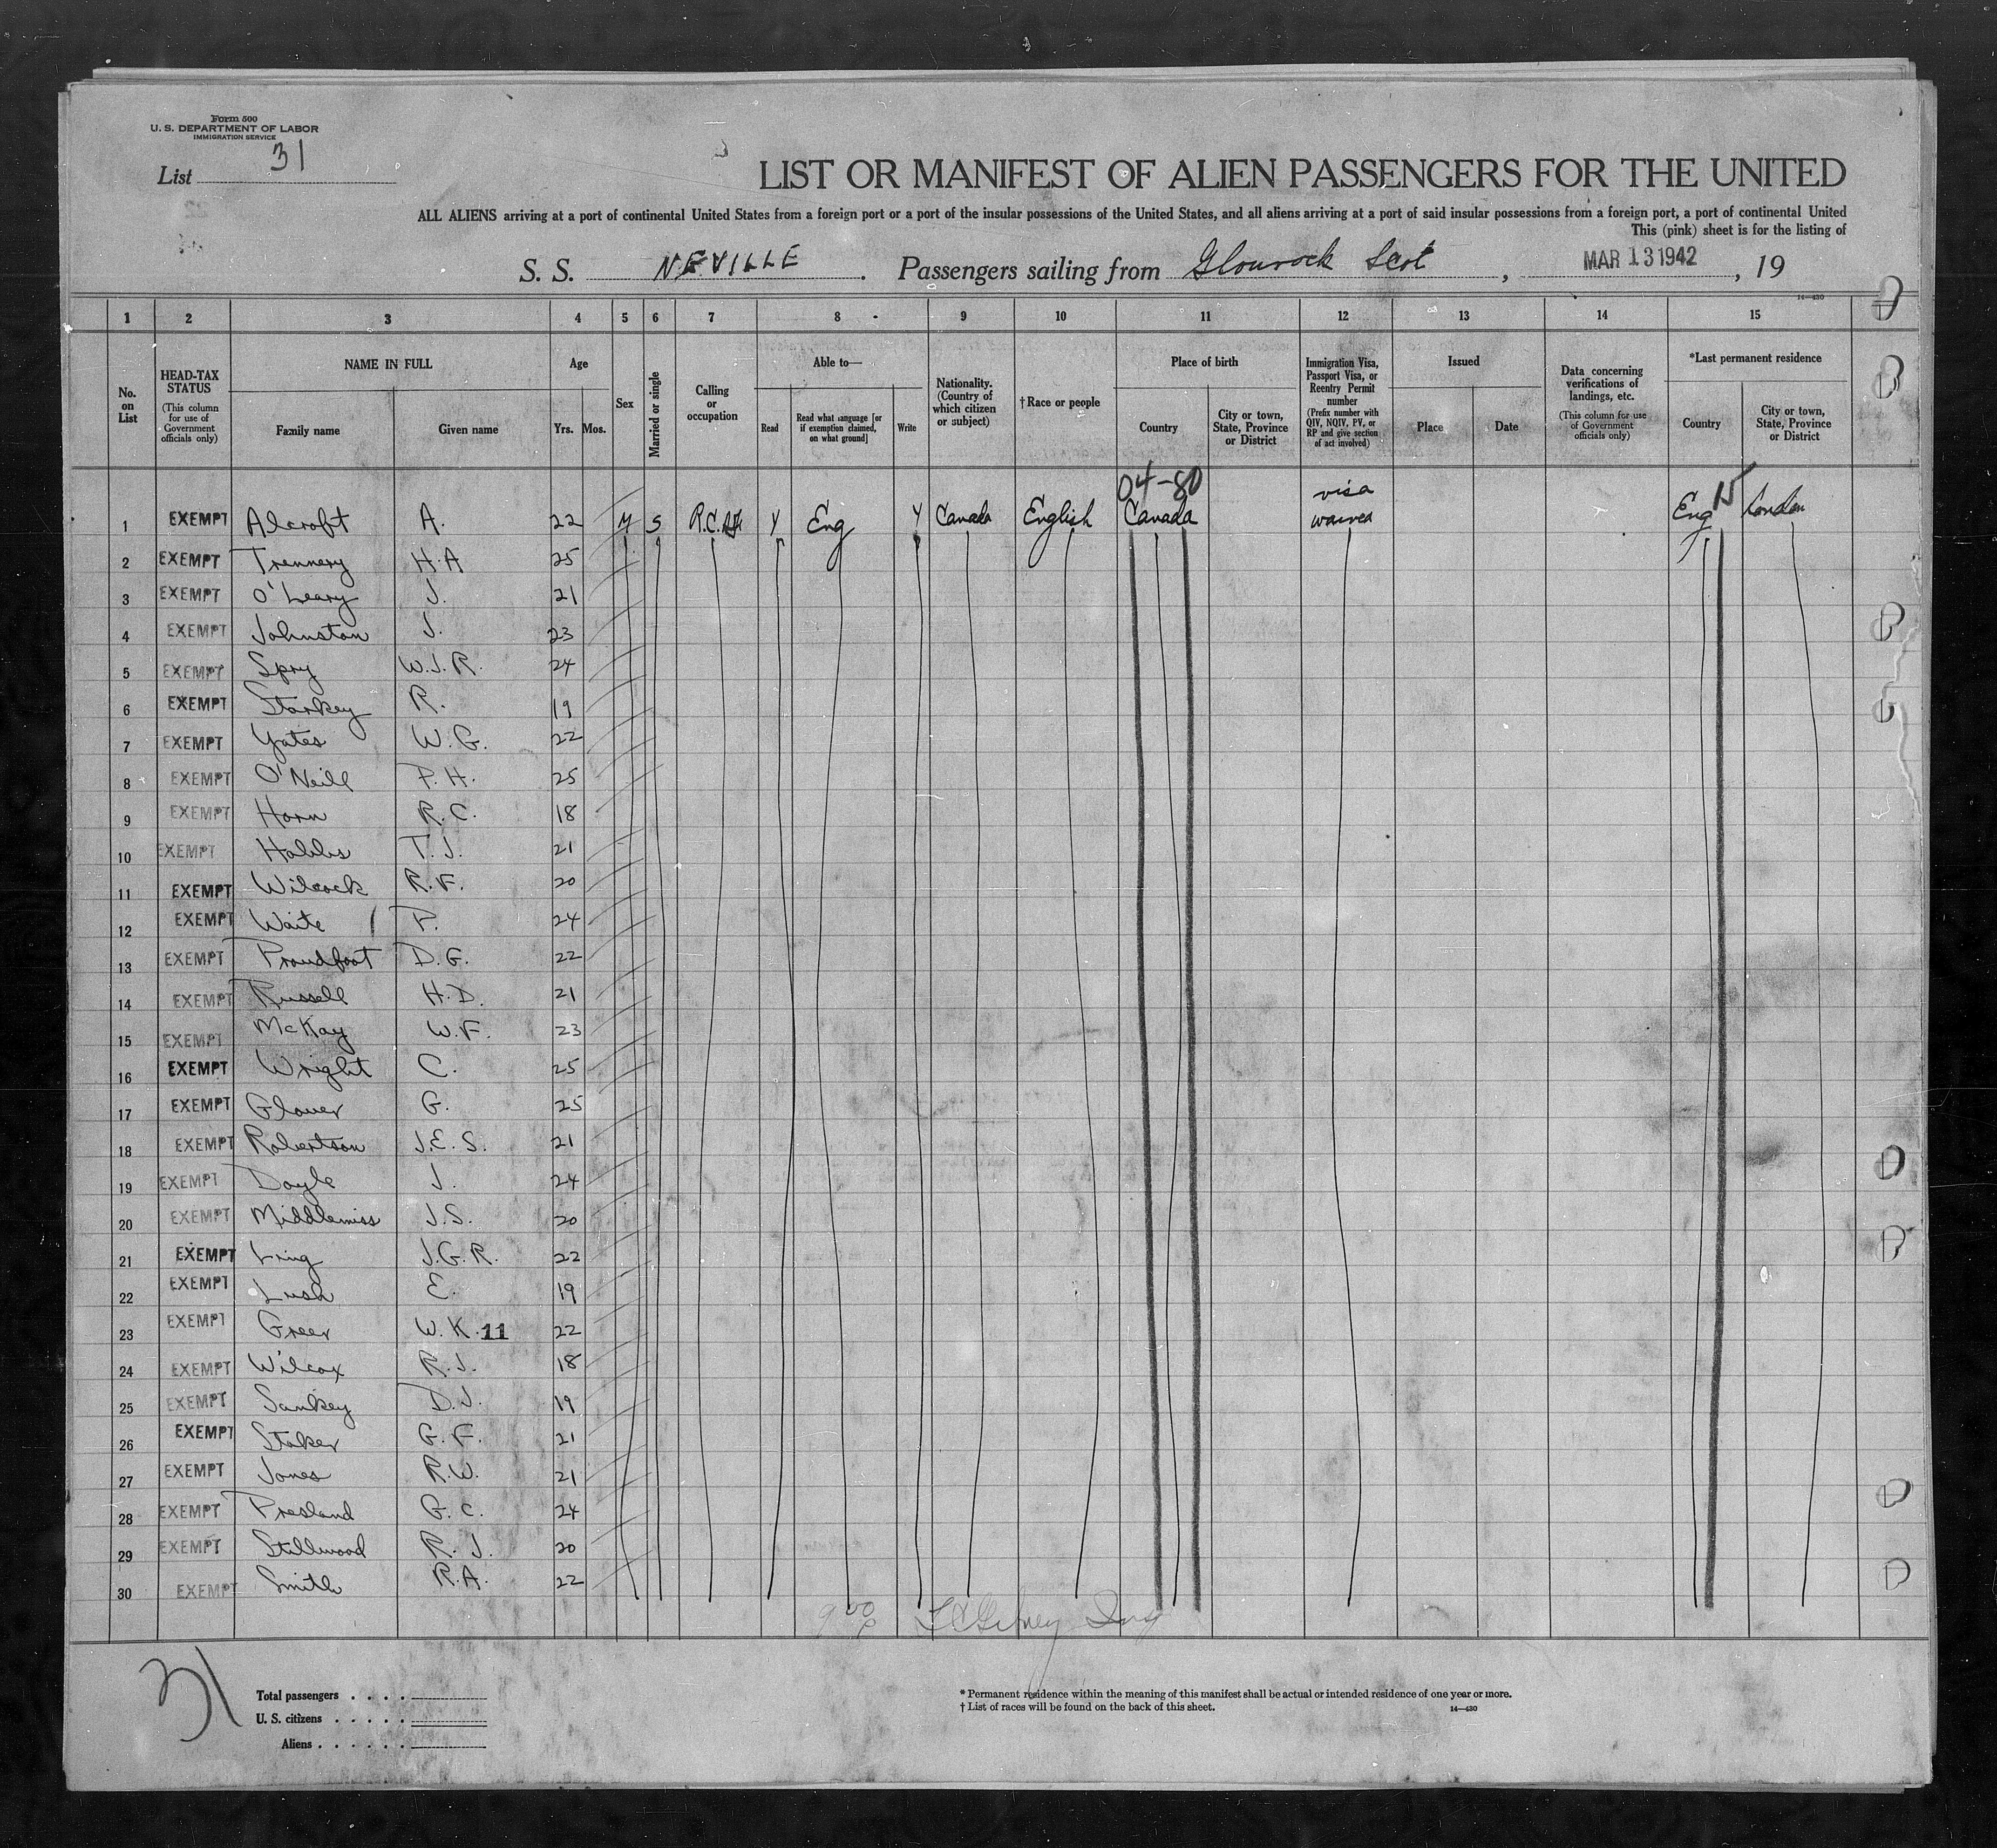 Form 500
U. S. DEPARTMENT OF LABOR
IMMIGRATION SERVICE
List 31
LIST OR MANIFEST OF ALIEN PASSENGERS FOR THE UNITED
ALL ALIENS arriving at a port of continental United States from a foreign port or a port of the insular possessions of the United States, and all aliens arriving at a port of said insular possessions from a foreign port, a port of continental United
This (pink) sheet is for the listing of
S. S. NEVILLE. Passengers sailing from Glourock Scot, MAR 13 1942, 19
14—430
1 2 3 4 5 6 7 8 9 10 11 12 13 14 15
No. on List
HEAD-TAX STATUS (This column for use of Government officials only)
NAME IN FULL Family name Given name
Age Yrs. Mos.
Sex
Married or single
Calling or occupation
Able to— Read Read what language [or if exemption claimed, on what ground] Write
Nationality. (Country of which citizen or subject)
† Race or people
Place of birth Country City or town, State, Province or District
Immigration Visa, Passport Visa, or Reentry Permit number (Prefix number with QIV, NQIV, PV, or RP and give section of act involved)
Issued Place Date
Data concerning verifications of landings, etc. (This column for use of Government officials only)
*Last permanent residence Country City or town, State, Province or District
04-80 visa 15
1 EXEMPT Alcroft A. 22 M S Y Eng Y Canada English Canada waived Eng London
2 EXEMPT Trennery H.A 25
3 EXEMPT O'Leary J. 21
4 EXEMPT Johnston J. 23
5 EXEMPT Spry W.J.R. 24
6 EXEMPT Starkey R. 19
7 EXEMPT Yates W.G. 22
8 EXEMPT O'Neill P.H. 25
9 EXEMPT Horn R.C. 18
10 EXEMPT Hobbs T.J. 21
11 EXEMPT Wilcock R.F. 20
12 EXEMPT Waite P. 24
13 EXEMPT Proudfoot D.G. 22
14 EXEMPT Russell H.D. 21
15 EXEMPT McKay W.F. 23
16 EXEMPT Wright C. 25
17 EXEMPT Glover G. 25
18 EXEMPT Robertson J.E.S. 21
19 EXEMPT Doyle J. 24
20 EXEMPT Middlemiss J.S. 20
21 EXEMPT Ling J.G.R. 22
22 EXEMPT Lush E. 19
23 EXEMPT Greer W.K. 11 22
24 EXEMPT Wilcox R.J. 18
25 EXEMPT Sankey D.J. 19
26 EXEMPT Stoker G.F. 21
27 EXEMPT Jones R.W. 21
28 EXEMPT Presland G.C. 24
29 EXEMPT Stillwood R.J. 20
30 EXEMPT Smith R.A. 22
31
Total passengers . . . .
U. S. citizens . . . . .
Aliens . . . . . .
* Permanent residence within the meaning of this manifest shall be actual or intended residence of one year or more.
† List of races will be found on the back of this sheet.
14—430